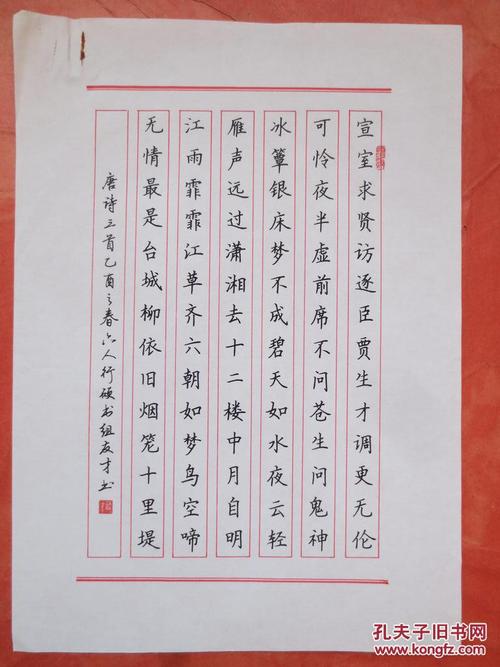 宣室求贤访逐臣贾生才调更无伦
可怜夜半虚前席不问苍生问鬼神
冰簟银床梦不成碧天如水夜云轻
雁声远过潇湘去十二楼中月自明
江雨霏霏江草齐六朝如梦鸟空啼
无情最是台城柳依旧烟笼十里堤
唐诗三首乙酉之春六人行硕书组友才书
孔夫子旧书网
www.kongfz.com